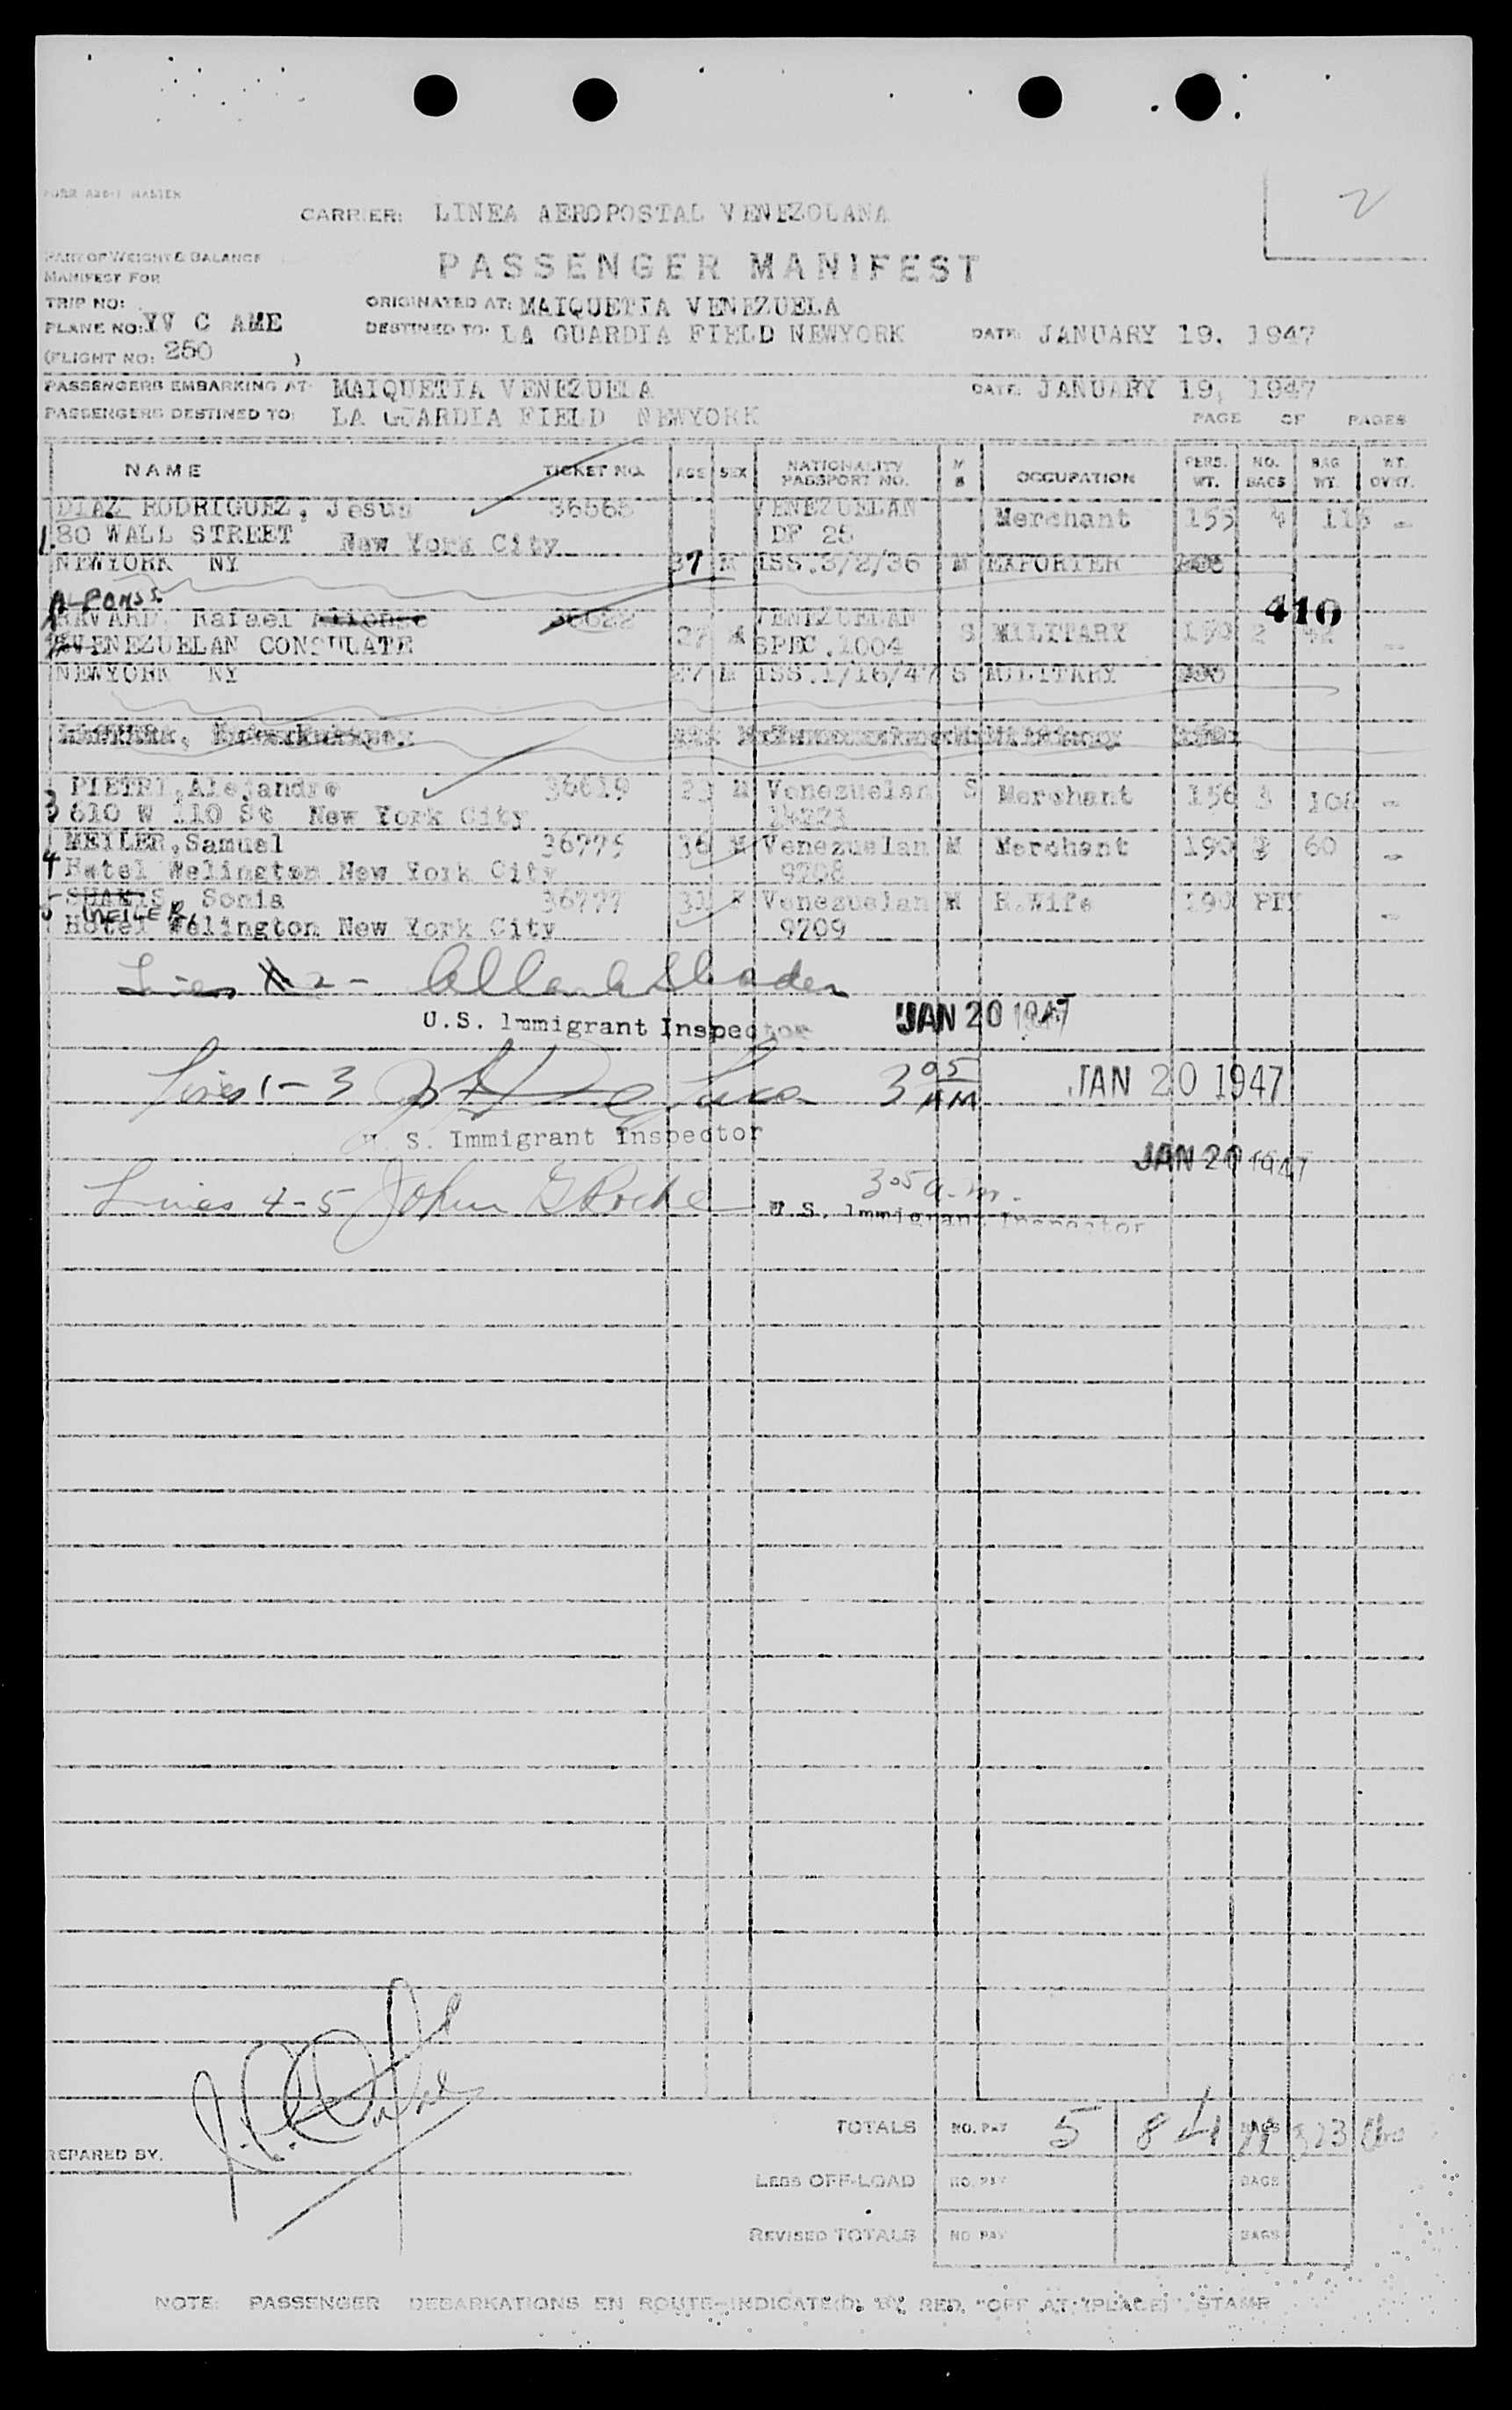 2
CARRIER: LINEA AEROPOSTAL VENEZOLANA
PART OF WEIGHT & BALANCE
MANIFEST FOR
PASSENGER MANIFEST
TRIP NO:
ORIGINATED AT: MAIQUETIA VENEZUELA
PLANE NO: YV C AME
DESTINED TO: LA GUARDIA FIELD NEWYORK DATE: JANUARY 19. 1947
(FLIGHT NO: 250 )
PASSENGERS EMBARKING AT: MAIQUETIA VENEZUELA DATE: JANUARY 19, 1947
PASSENGERS DESTINED TO: LA GUARDIA FIELD NEWYORK PAGE OF PAGES
NAME TICKET NO. AGE SEX NATIONALITY PASSPORT NO. M S OCCUPATION PERS. WT. NO. BAGS BAG WT. WT. OVWT.
DIAZ RODRIGUEZ, Jesus 36565 VENEZUELAN Merchant 155 4 115 -
1. 80 WALL STREET New York City DF 25
NEWYORK NY 37 M ISS.3/2/36 M EXPORTER
ALFONSO 410
RAVARD, Rafael Alfonso 36622 27 M VENEZUELAN S MILITARY 150 2 42 -
VENEZUELAN CONSULATE SPEC.1004
NEWYORK NY 27 M ISS.1/16/47 S MILITARY
PIETRI, Alejandro 36619 23 M Venezuelan S Merchant 156 3 106 -
3 610 W 110 St New York City 14223
MEILER, Samuel 36775 36 M Venezuelan M Merchant 190 60 -
4 Hotel Welington New York City 9708
5 SHAKIS, Sonia 36777 31 F Venezuelan M H.Wife 190 -
MEILER
Hotel Welington New York City 9709
Lines 2 -
U.S. Immigrant Inspector JAN 20 1947
Lines 1-3 3 05 AM JAN 20 1947
U. S. Immigrant Inspector
JAN 20 1947
Lines 4-5 John G Roche 3 05 a.m.
U. S. Immigrant Inspector
TOTALS NO. PAY 5 84 BAGS 323
PREPARED BY.
LESS OFF-LOAD NO. PAY BAGS
REVISED TOTALS NO. PAY BAGS
NOTE: PASSENGER DEBARKATIONS EN ROUTE-INDICATE(D) BY RED, "OFF AT (PLACE)" STAMP